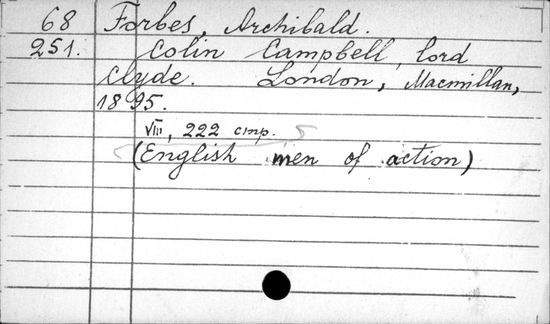 68 Forbes, Archibald.
251. Colin Campbell, lord
Clyde. London, Macmillan,
1895.
VIII, 222 стр.
(English men of action)